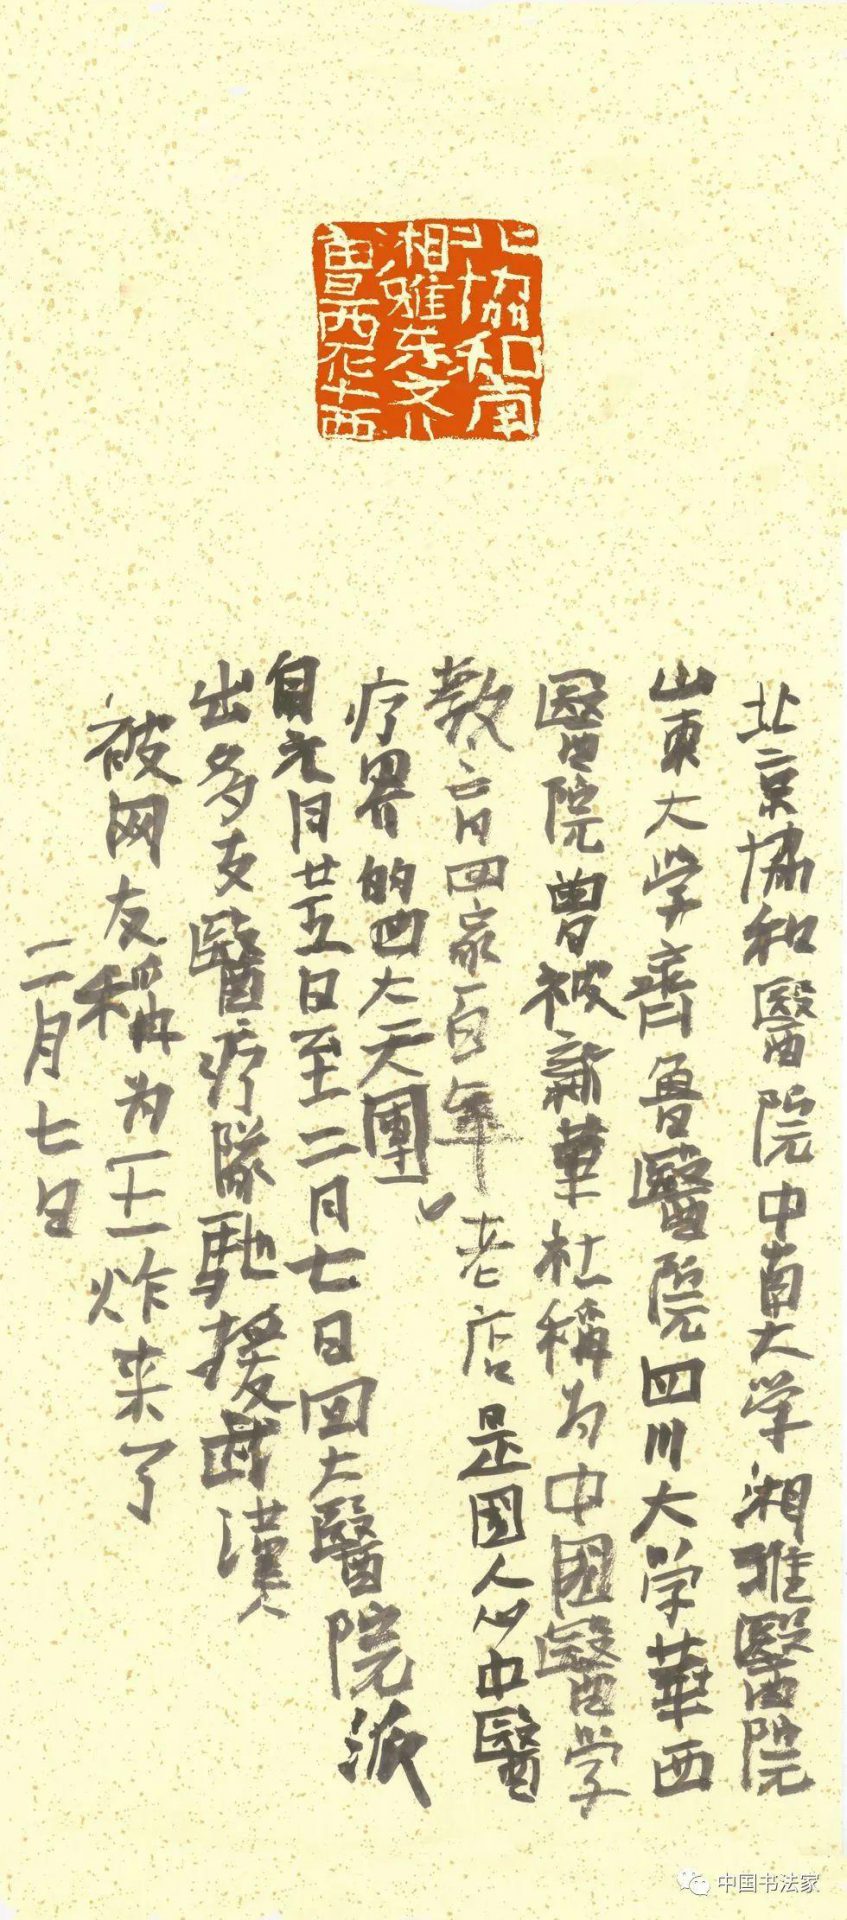 北協和南
湘雅东齐
鲁西华西
北京協和醫院中南大学湘雅醫院
山東大学齊魯醫院四川大学華西
醫院曾被新華社稱为中國醫学
教育四家百年老店是國人心中醫
疗界的四大天團
自元月廿五日至二月七日四大醫院派
出多支醫疗隊馳援武漢
被网友稱为王炸来了
二月七日
中国书法家